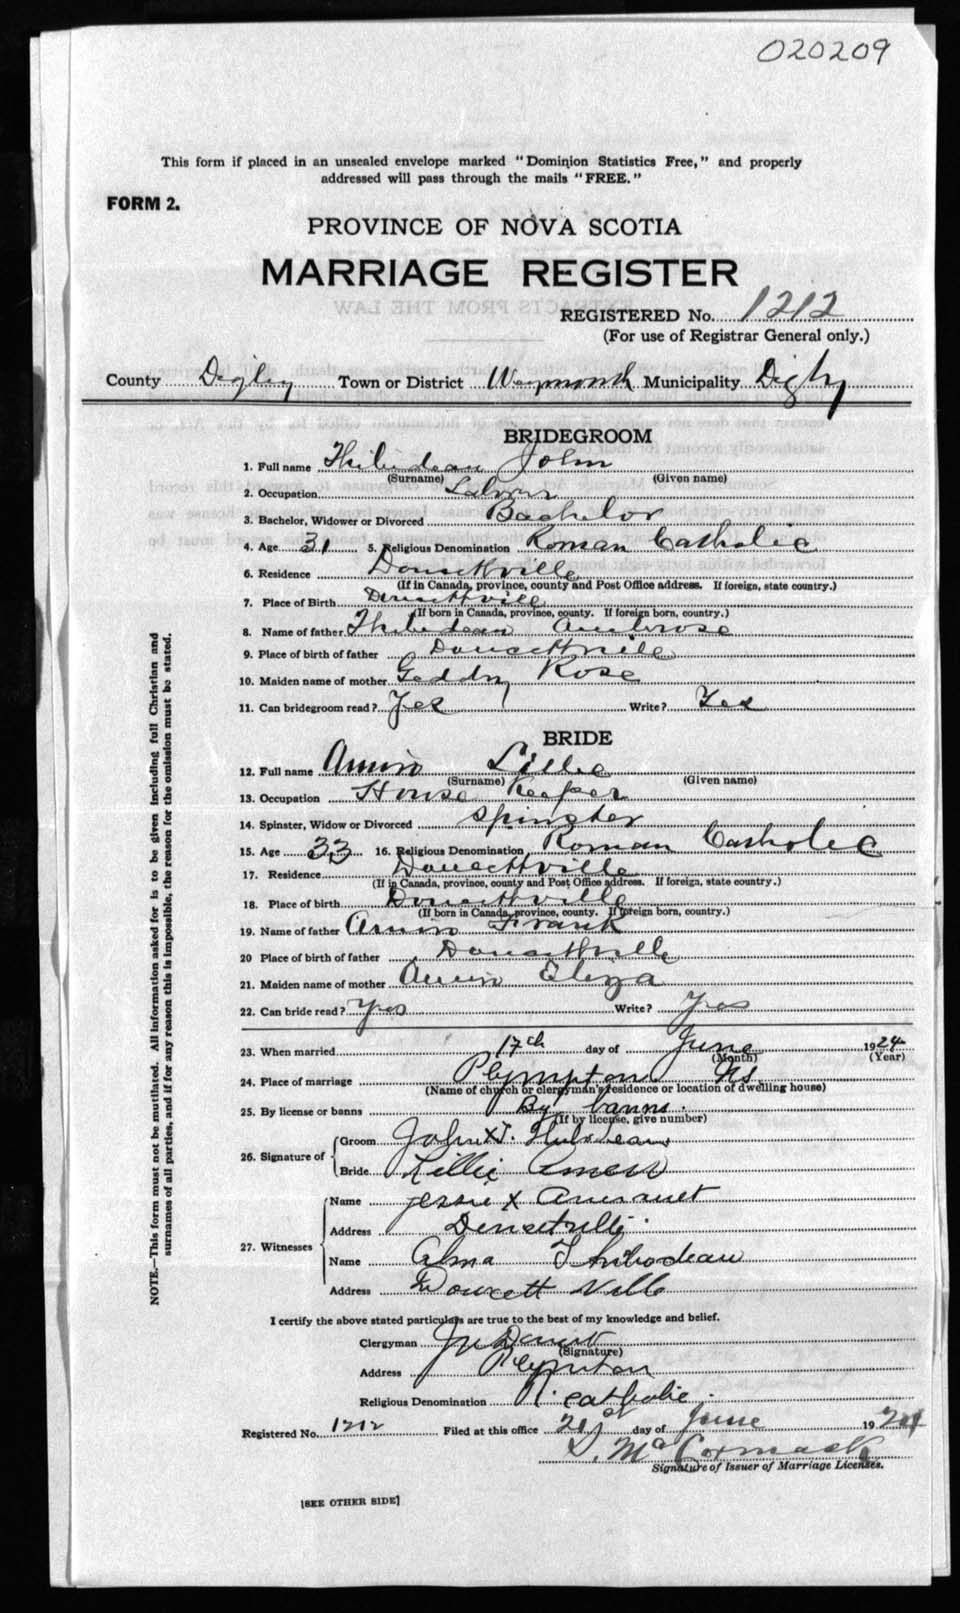 020209
This form if placed in an unsealed envelope marked "Dominion Statistics Free," and properly
addressed will pass through the mails "FREE."
FORM 2.
PROVINCE OF NOVA SCOTIA
MARRIAGE REGISTER
REGISTERED No. 1212
(For use of Registrar General only.)
County Digby Town or District Weymouth Municipality Digby
BRIDEGROOM
1. Full name Thibideau John
(Surname) (Given name)
2. Occupation Labour
3. Bachelor, Widower or Divorced Bachelor
4. Age 31 5. Religious Denomination Roman Catholic
6. Residence Doucettville
(If in Canada, province, county and Post Office address. If foreign, state country.)
7. Place of Birth Doucettville
(If born in Canada, province, county. If foreign born, country.)
8. Name of father Thibideau Ambrose
9. Place of birth of father Doucettville
10. Maiden name of mother Geddry Rose
11. Can bridegroom read? Yes Write? Yes
BRIDE
12. Full name Amiro Lillie
(Surname) (Given name)
13. Occupation House Keeper
14. Spinster, Widow or Divorced Spinster
15. Age 33 16. Religious Denomination Roman Catholic
17. Residence Doucettville
(If in Canada, province, county and Post Office address. If foreign, state country.)
18. Place of birth Doucettville
(If born in Canada, province, county. If foreign born, country.)
19. Name of father Amiro Frank
20 Place of birth of father Doucettville
21. Maiden name of mother Amiro Eliza
22. Can bride read? Yes Write? Yes
23. When married 17th day of June 1924
(Month) (Year)
24. Place of marriage Plympton NS
(Name of church or clergyman's residence or location of dwelling house)
25. By license or banns By banns.
(If by license, give number)
26. Signature of Groom John X T. Thibodeau
Bride Lillie
27. Witnesses Name Jessie X
Address Doucetville
Name Alma Thibodeau
Address Doucett Ville
I certify the above stated particulars are true to the best of my knowledge and belief.
Clergyman
(Signature)
Address Plympton
Religious Denomination R. Catholic.
Registered No. 1212 Filed at this office 21st day of June 1924
McCormack
Signature of Issuer of Marriage Licenses.
[SEE OTHER SIDE]
NOTE.—This form must not be mutilated. All information asked for is to be given including full Christian and
surnames of all parties, and if for any reason this is impossible, the reason for the omission must be stated.